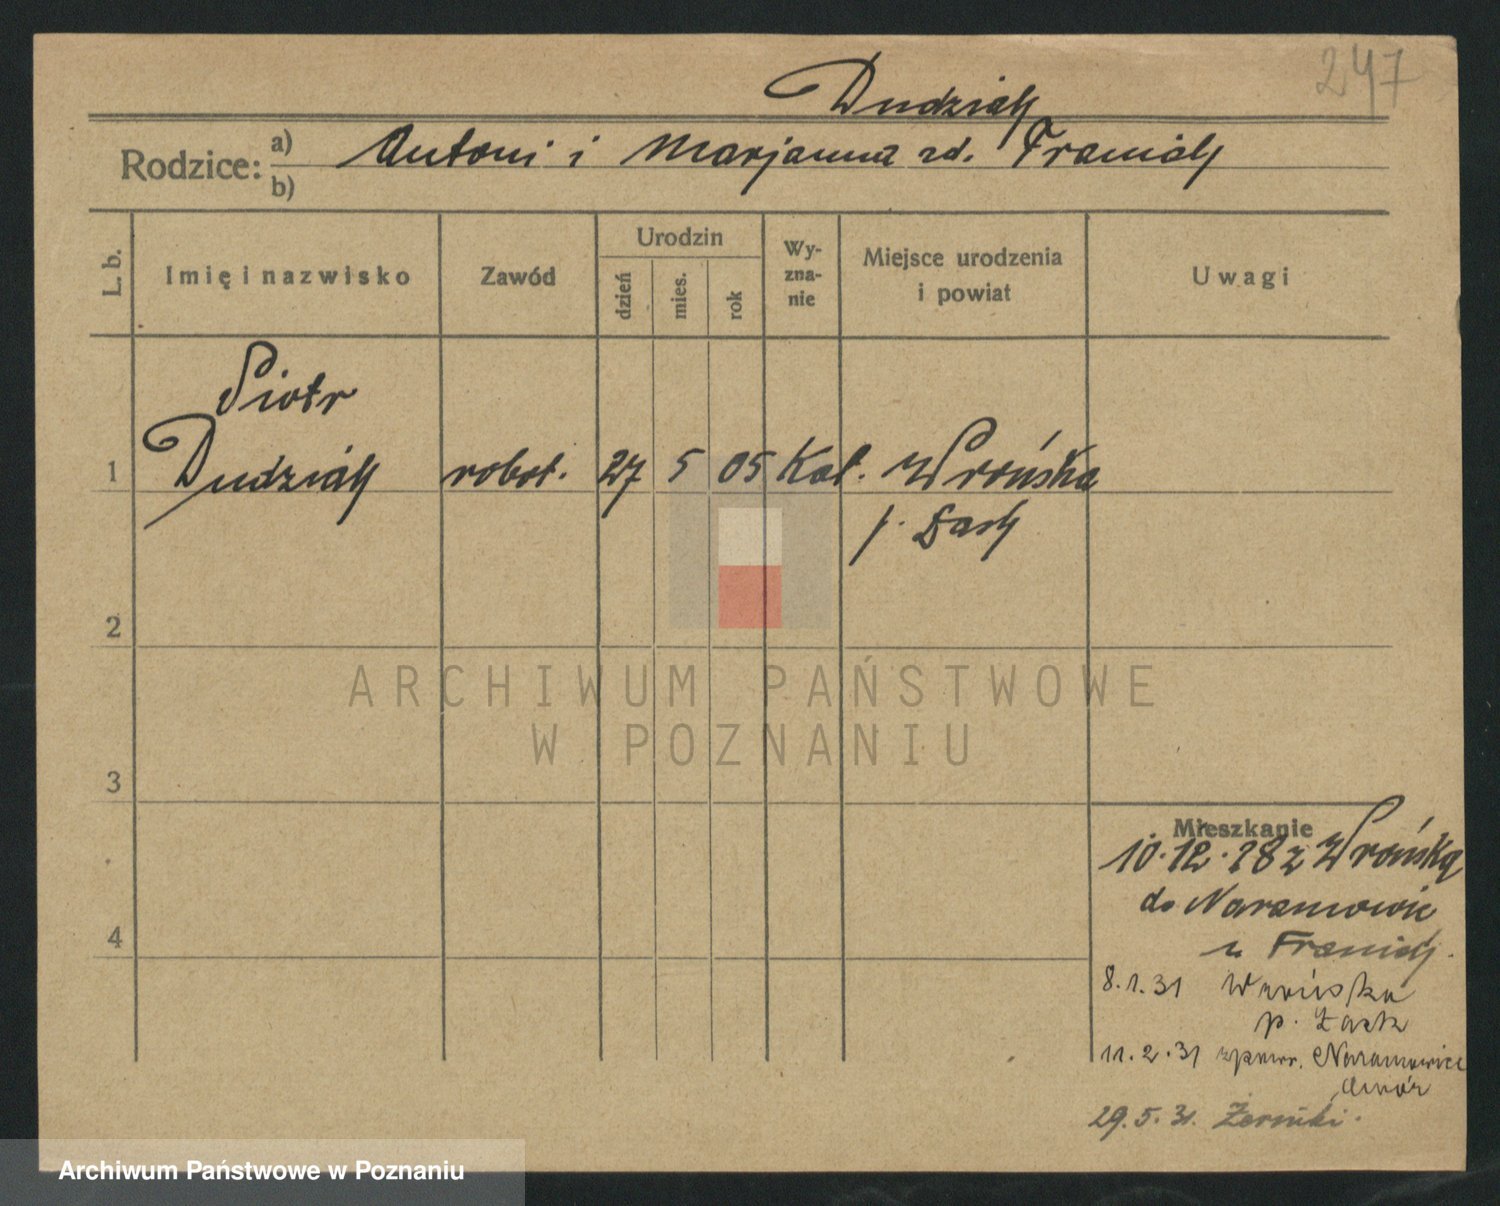 247
Dudziak
Rodzice: a) Antoni i Marjanna zd. Franiak
b)
L. b. Imię i nazwisko Zawód Urodzin dzień mies. rok Wyznanie Miejsce urodzenia i powiat Uwagi
Piotr
1 Dudziak robot. 27 5 05 Kat. Wrońska
p. Łask
2
ARCHIWUM PAŃSTWOWE
W POZNANIU
3
Mieszkanie
10.12.28 z Wrońska
do Naramowic
4
u Franiak.
8.1.31 Wrońska
p. Łask
11.2.31 zpowr. Naramowice
dwór
29.5.31. Żerniki.
Archiwum Państwowe w Poznaniu